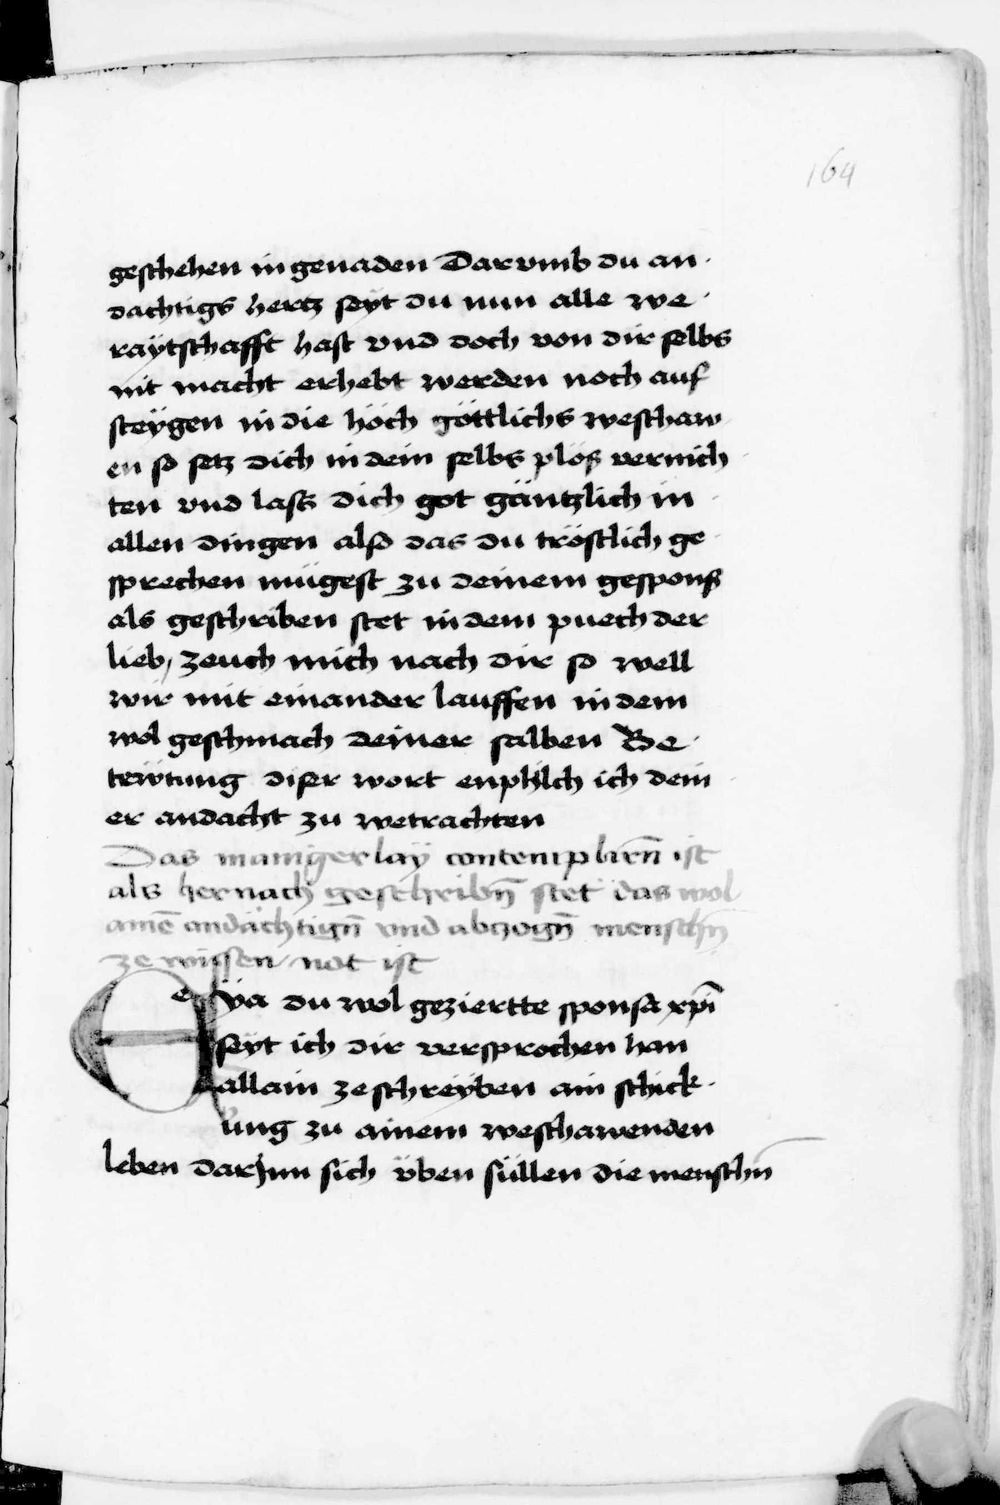 164
geschehen in genaden Dar vmb du an
dachtigs hertz seyt du nun alle we
raÿtschafft hast vnd doch von dir selbs
nit macht erhebt werden noch auf
steÿgen in die höch göttlichs weschaw
en so setz dich in dein selbs plöß vernich
ten vnd lass dich got gäntzlich in
allen dingen also das du tröstlich ge
sprechen mügest zu deinem gespons
als geschriben stet in dem puech der
lieb, zeuch mich nach dir so well
wir mit einander lauffen in dem
wol geschmach deiner salben Be
tewtung diser wort enphilch ich dein
er andacht zu wetrachten
Das manigerlaÿ contemplirn̄ ist
als hernach geschribn̄ stet das wol
aime andächtign̄ vnd abzogn̄ menschn̄
ze wissen not ist
Eÿa du wol geziertte sponsa xpī
seÿt ich dir versprochen han
allain ze schreÿben ain schick
ung zu ainem weschawenden
leben dar jnn sich üben süllen die menschn̄